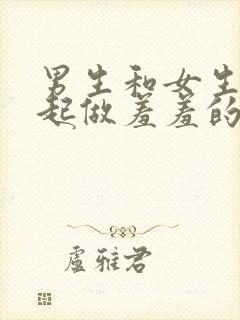 男生和女生
起做羞羞的
盧雅君